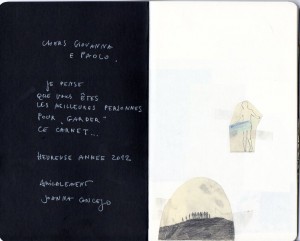 GIOVANNA
E PAOLO.
JE PENSE
QUE VOUS ÊTES
LES MEILLEURES PERSONNES
POUR „GARDER"
CE CARNET...
HEUREUSE ANNEE 2012
AMICALEMENT
JOANNA CONCEJO